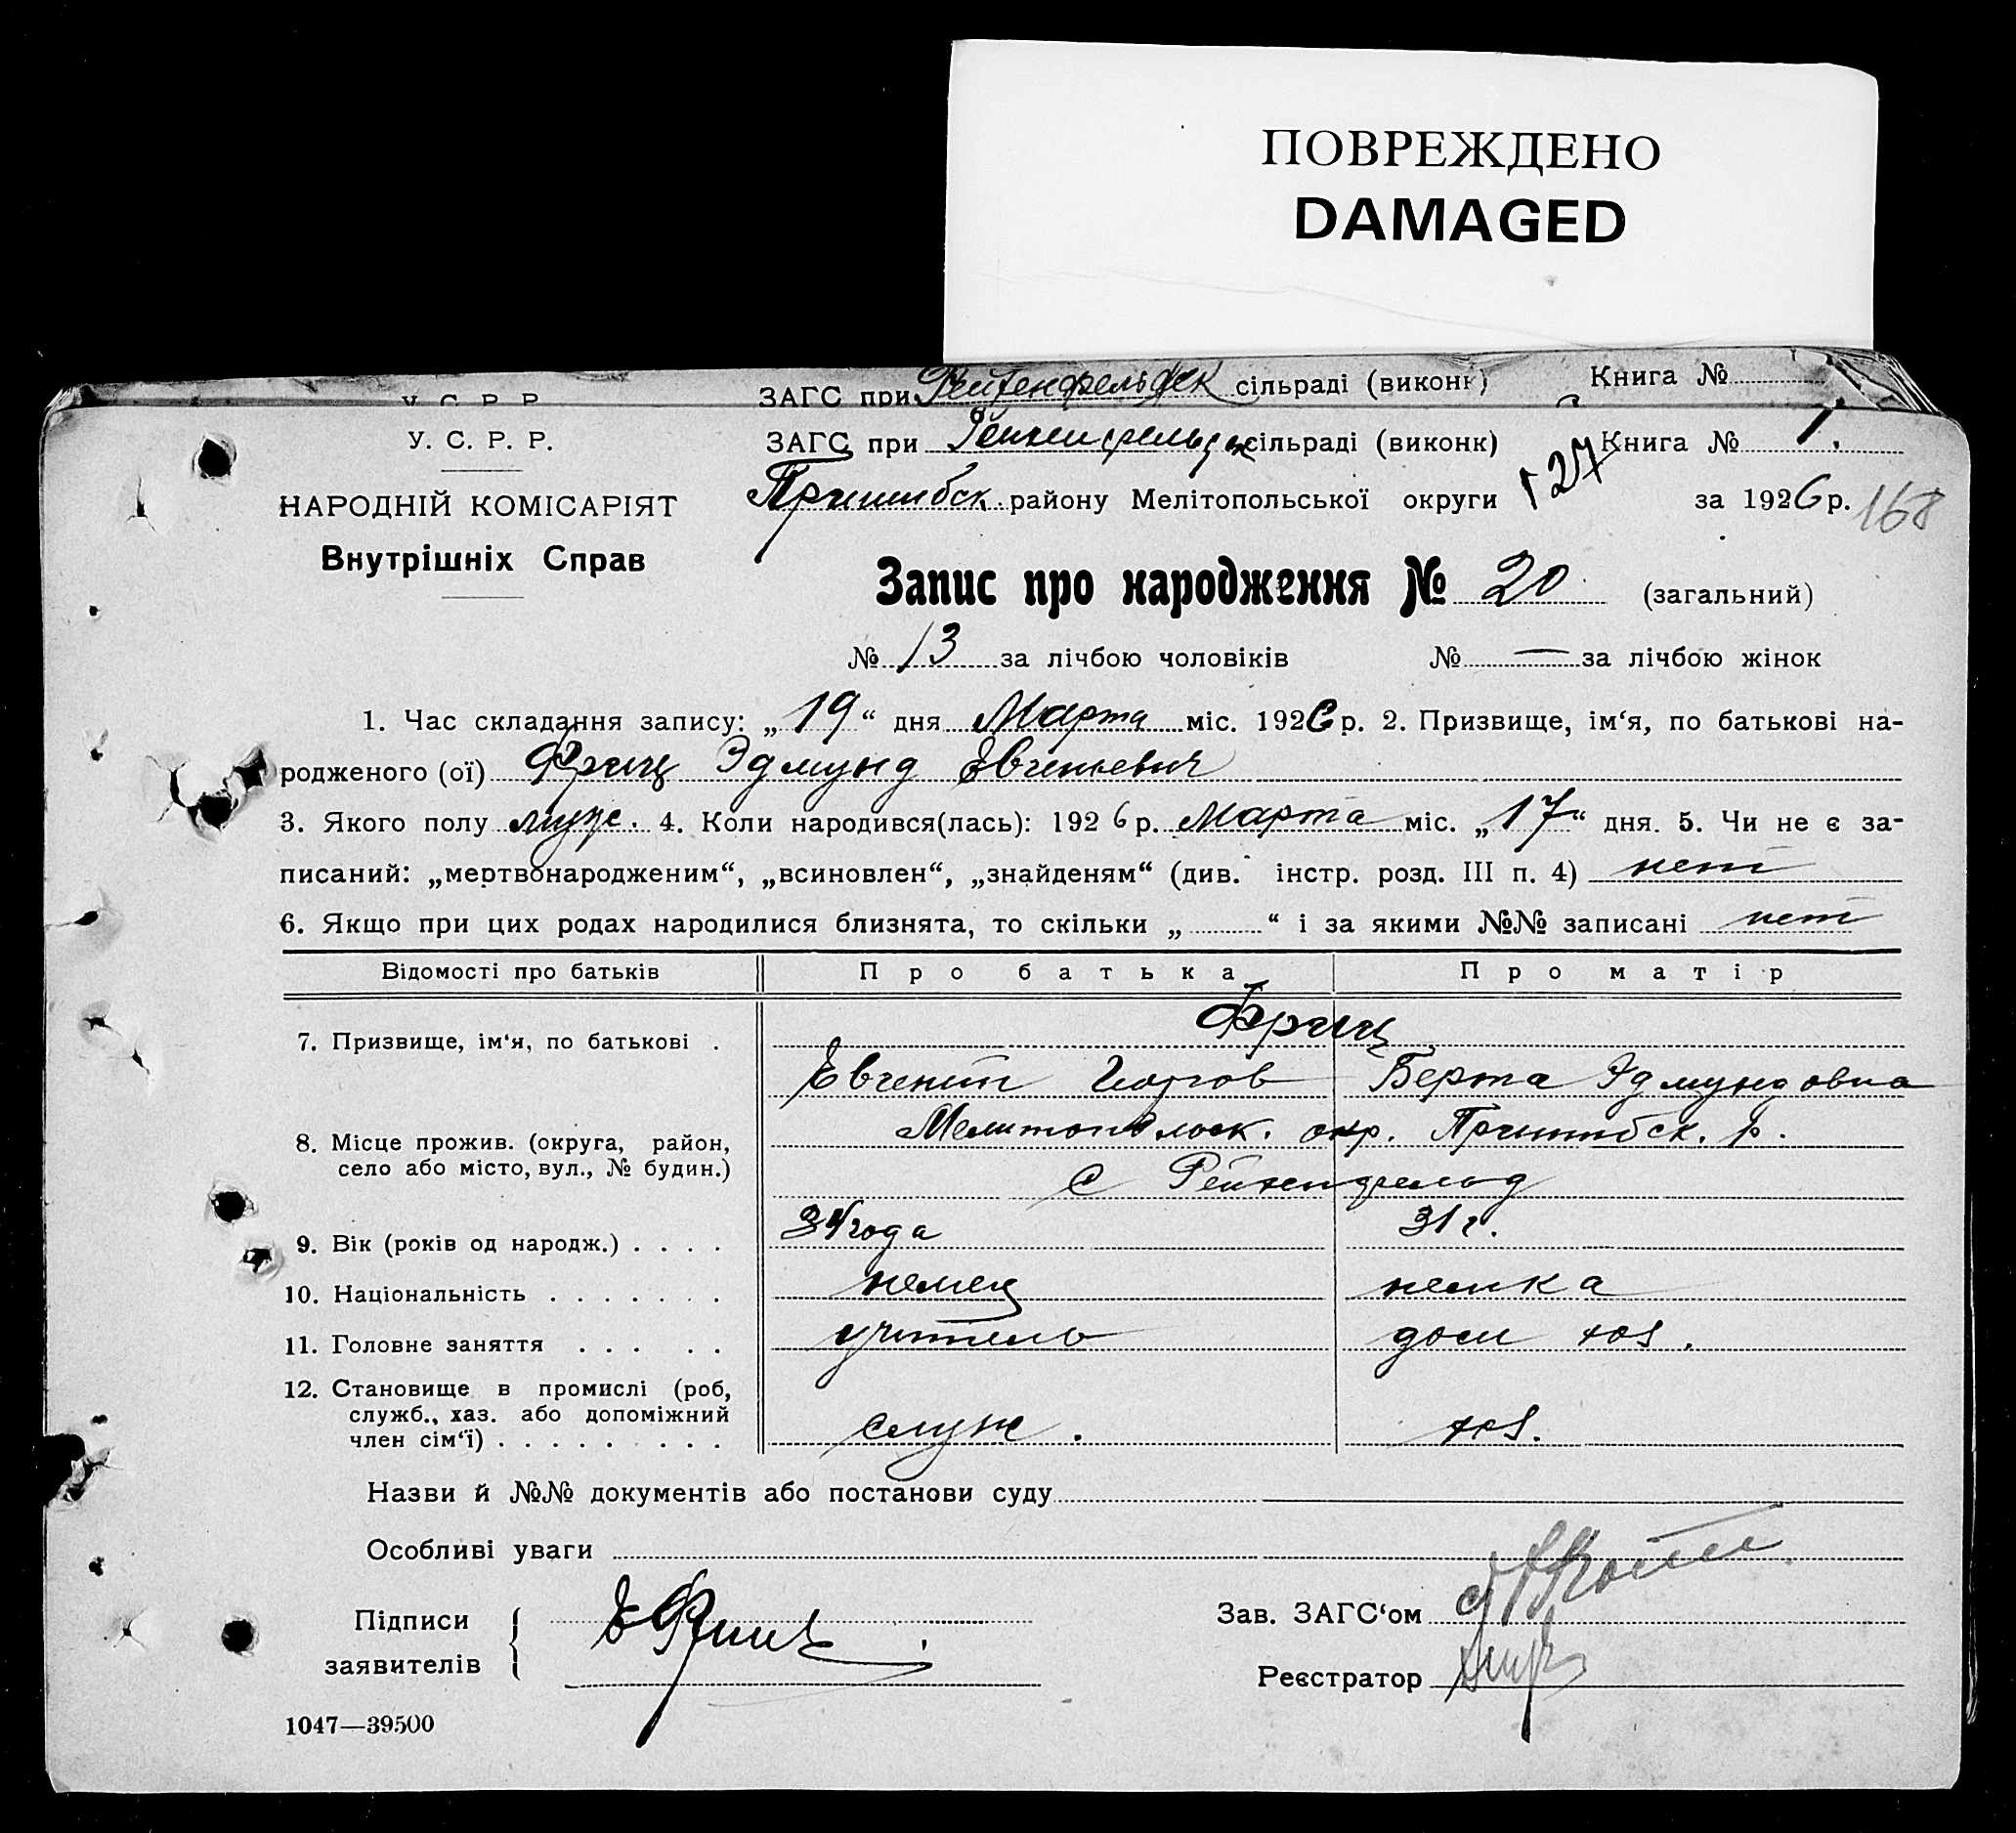 ПОВРЕЖДЕНО
DAMAGED
У. С. Р. Р. ЗАГС при Рейхенфельдск сільраді (виконк) Книга №
У. С. Р. Р. ЗАГС при Рейхенфельдск сільраді (виконк) Книга № 1.
НАРОДНІЙ КОМІСАРІЯТ Пришибск. району Мелітопольської округи 127 за 1926 р. 168
Внутрішніх Справ
Запис про народження № 20 (загальний)
№ 13 за лічбою чоловіків № — за лічбою жінок
1. Час складання запису: „19“ дня Марта міс. 1926 р. 2. Призвище, ім‘я, по батькові на-
родженого (ої) Фриц Эдмунд Евгениевич
3. Якого полу муж. 4. Коли народився(лась): 1926 р. Марта міс. „17“ дня. 5. Чи не є за-
писаний: „мертвонародженим“, „всиновлен“, „знайденям“ (див. інстр. розд. III п. 4) нет
6. Якщо при цих родах народилися близнята, то скільки „ “ і за якими №№ записані нет
Відомості про батьків Про батька Про матір
Фриц
7. Призвище, ім‘я, по батькові .
Евгений Георгов Берта Эдмундовна
8. Місце прожив. (округа, район, Мелитопольск. окр. Пришибск. р.
село або місто, вул., № будин.) с Рейхенфельд
9. Вік (років од народж.) . . . . 34 года 31 г.
10. Національність . . . . . . . немец немка
11. Головне заняття . . . . . учитель дом хоз.
12. Становище в промислі (роб,
служб., хаз. або допоміжний
член сім‘ї) . . . . . . . . . служ. хоз.
Назви й №№ документів або постанови суду
Особливі уваги
Підписи Е Фриц Зав. ЗАГС‘ом
заявителів Реєстратор
1047—39500